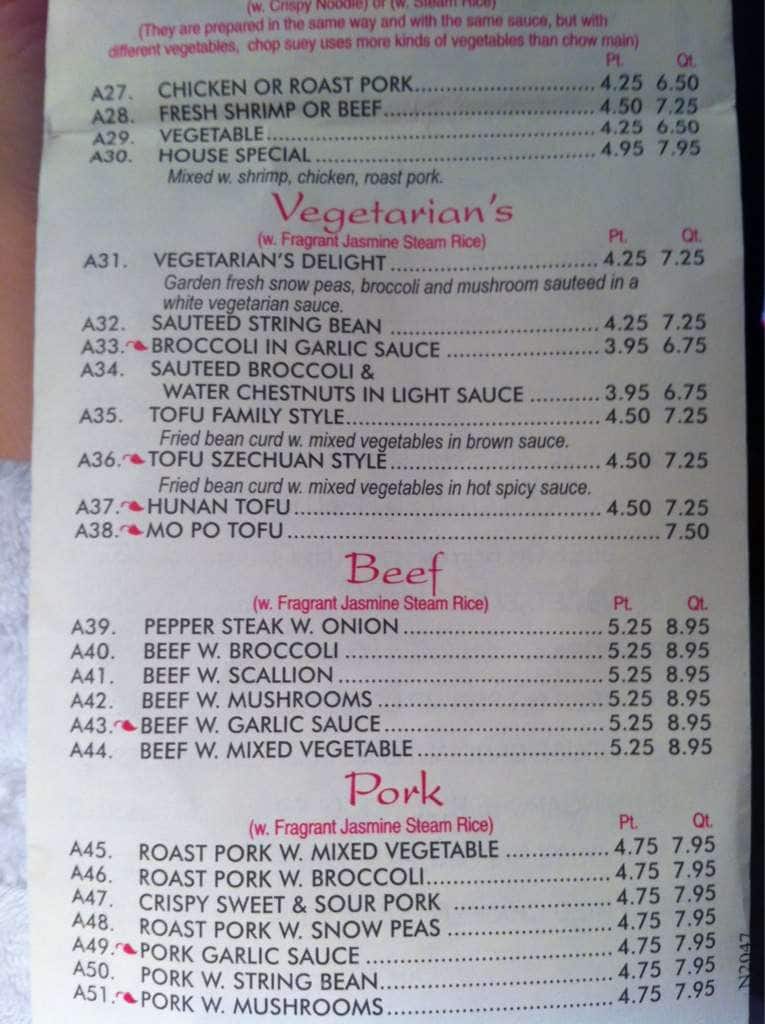 (w. Crispy Noodle) or (w. Steam Rice)
(They are prepared in the same way and with the same sauce, but with
different vegetables, chop suey uses more kinds of vegetables than chow main)
Pt. Qt.
A27. CHICKEN OR ROAST PORK 4.25 6.50
A28. FRESH SHRIMP OR BEEF 4.50 7.25
A29. VEGETABLE 4.25 6.50
A30. HOUSE SPECIAL 4.95 7.95
Mixed w. shrimp, chicken, roast pork.
Vegetarian's
(w. Fragrant Jasmine Steam Rice) Pt. Qt.
A31. VEGETARIAN'S DELIGHT 4.25 7.25
Garden fresh snow peas, broccoli and mushroom sauteed in a
white vegetarian sauce.
A32. SAUTEED STRING BEAN 4.25 7.25
A33. BROCCOLI IN GARLIC SAUCE 3.95 6.75
A34. SAUTEED BROCCOLI &
WATER CHESTNUTS IN LIGHT SAUCE 3.95 6.75
A35. TOFU FAMILY STYLE 4.50 7.25
Fried bean curd w. mixed vegetables in brown sauce.
A36. TOFU SZECHUAN STYLE 4.50 7.25
Fried bean curd w. mixed vegetables in hot spicy sauce.
A37. HUNAN TOFU 4.50 7.25
A38. MO PO TOFU 7.50
Beef
(w. Fragrant Jasmine Steam Rice) Pt. Qt.
A39. PEPPER STEAK W. ONION 5.25 8.95
A40. BEEF W. BROCCOLI 5.25 8.95
A41. BEEF W. SCALLION 5.25 8.95
A42. BEEF W. MUSHROOMS 5.25 8.95
A43. BEEF W. GARLIC SAUCE 5.25 8.95
A44. BEEF W. MIXED VEGETABLE 5.25 8.95
Pork
(w. Fragrant Jasmine Steam Rice) Pt. Qt.
A45. ROAST PORK W. MIXED VEGETABLE 4.75 7.95
A46. ROAST PORK W. BROCCOLI 4.75 7.95
A47. CRISPY SWEET & SOUR PORK 4.75 7.95
A48. ROAST PORK W. SNOW PEAS 4.75 7.95
A49. PORK GARLIC SAUCE 4.75 7.95
A50. PORK W. STRING BEAN 4.75 7.95
A51. PORK W. MUSHROOMS 4.75 7.95
N2047